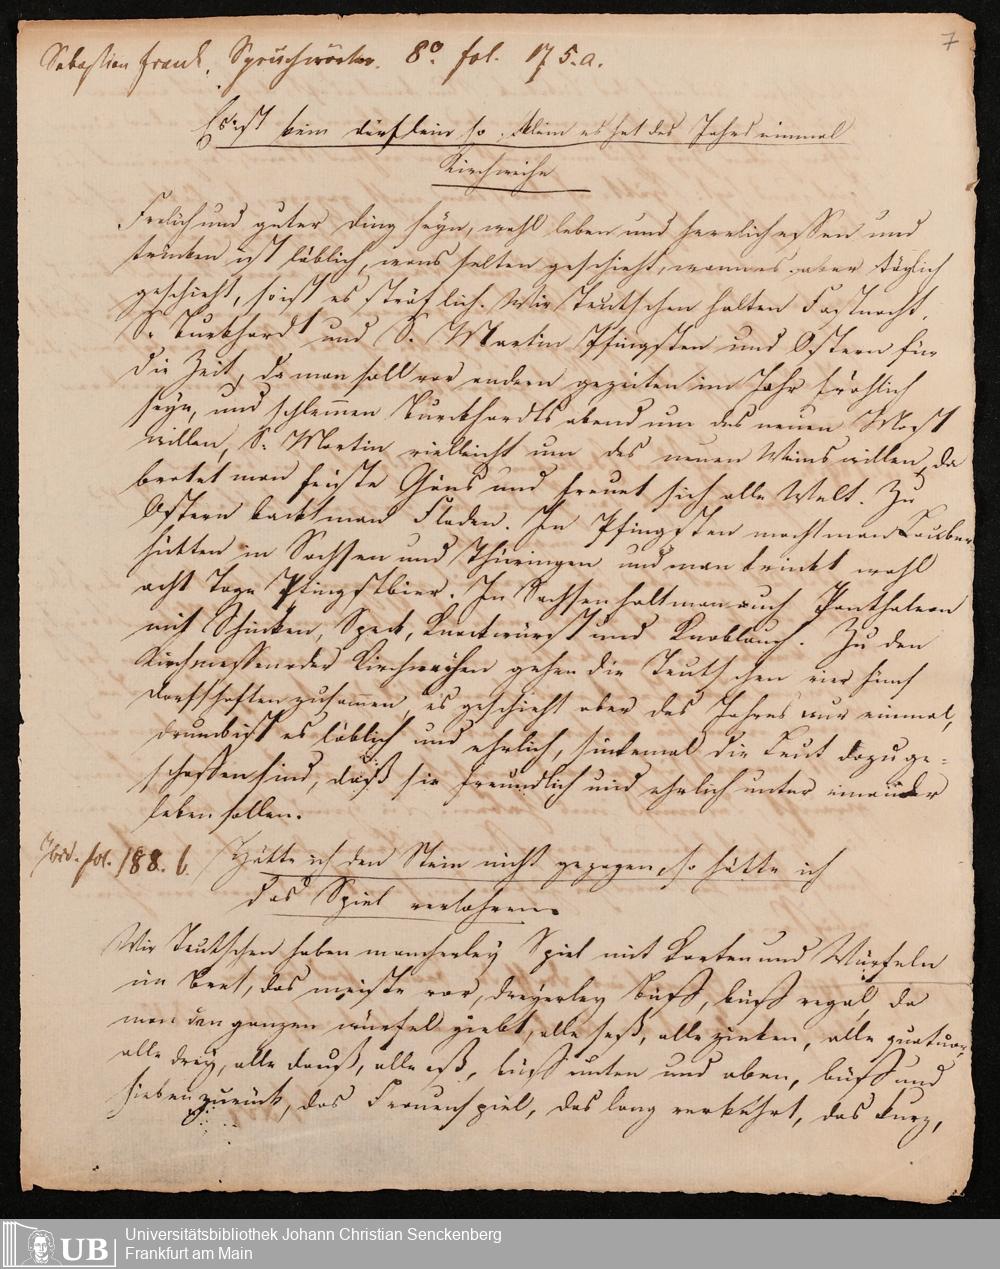 7
Sebastian Frank. Sprüchwörter. 8º. fol. 175.a.
Es ist kein dörflein so klein es hat des Jahrs einmal
Kirchweihe
Frölich und guter ding seyn, wohl leben und herrlich essen und
trinken ist löblich, wens selten geschieht, wann es aber täglich
geschieht, so ist es sträflich. Wir Teutschen halten Fastnacht,
S. Burkhardt und S. Martin Pfingsten und Ostern für
die Zeit, da man soll vor andern gezeiten im Jahr fröhlich
seyn, und schlemen Burckhardts abend um des neuen Most
willen, S. Martin vielleicht um des neuen Weins willen, da
bratet man feiste Gäns und freuet sich alle Welt. Zu
Ostern backt man Fladen. In Pfingsten macht man Lauber
hütten in Sachsen und Thüringen und man trinkt wohl
acht Tage Pfingstbier. In Sachsen halt man auch Panthaleon
mit Schinken, Speck, Knackwürst und Knoblauch. Zu den
Kirchmessen oder Kirchweihen gehen die Teutschen vier fünf
Dorfschaften zusamen, es geschieht aber des Jahres nur einmal,
drumb ist es löblich und ehrlich, sintemal die Leut dazu ge-
schaffen sind, daß sie freundlich und ehrlich unter einander
leben sollen.
Ibid. fol. 188. b. Hätte ich den Stein nicht gezogen, so hätte ich
das Spiel verlohren.
Wir Teutschen haben mancherley Spiel mit Karten und Würfeln
im Bret, das meiste vor, dreyerley Buff, buff regal, da
man den ganzen würfel giebt, alle seß, alle zinken, alle quatuor,
alle drey, alle dauß, alle eß, buff unten und oben, buff und
hieben zurück, das Frauenspiel, das lang verkehrt, das kurz,
UB
Universitätsbibliothek Johann Christian Senckenberg
Frankfurt am Main